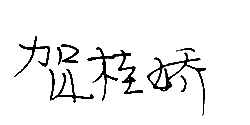 贺桂娇